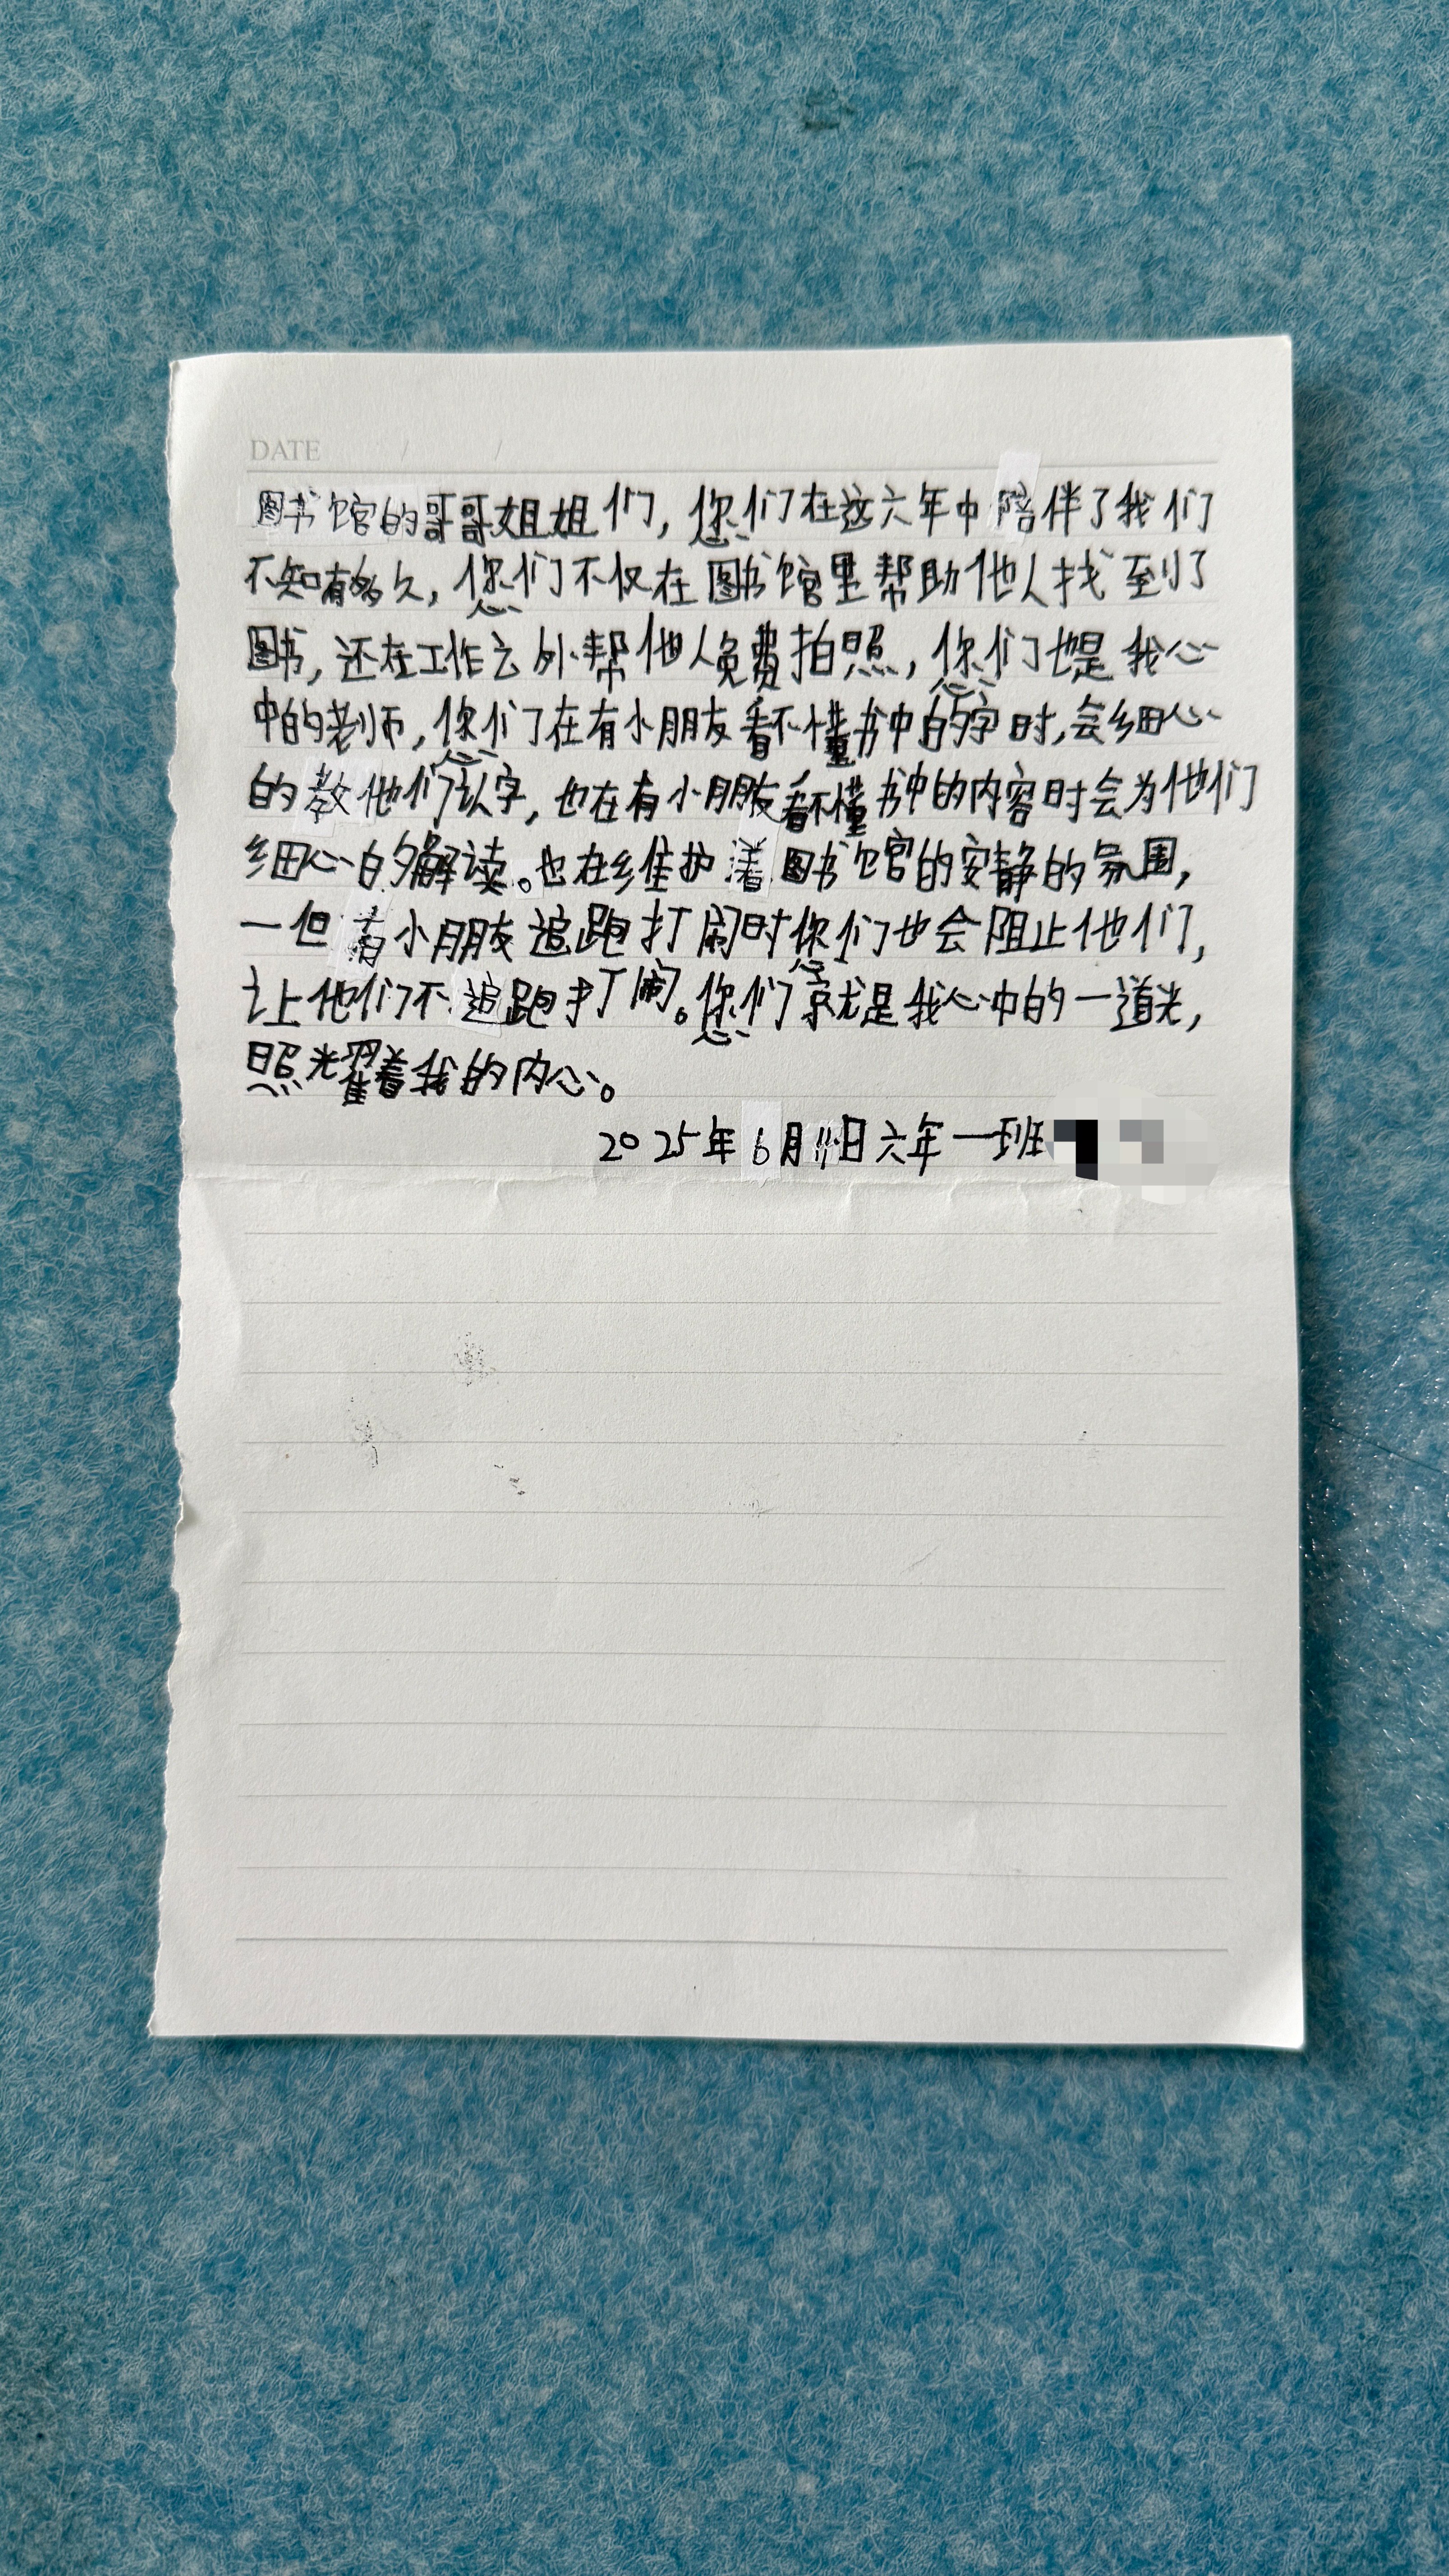 DATE / /
图书馆的哥哥姐姐们，您们在这六年中陪伴了我们
不知有多久，您们不仅在图书馆里帮助他人找到了
图书，还在工作之外帮他人免费拍照，您们也是我心
中的老师，您们在有小朋友看不懂书中的字时，会细心
的教他们认字，也在有小朋友看不懂书中的内容时会为他们
细心的解读。也在维护着图书馆的安静的氛围，
一但有小朋友追跑打闹时您们也会阻止他们，
让他们不追跑打闹。您们就是我心中的一道光，
照光耀着我的内心。
2025年6月11日六年一班